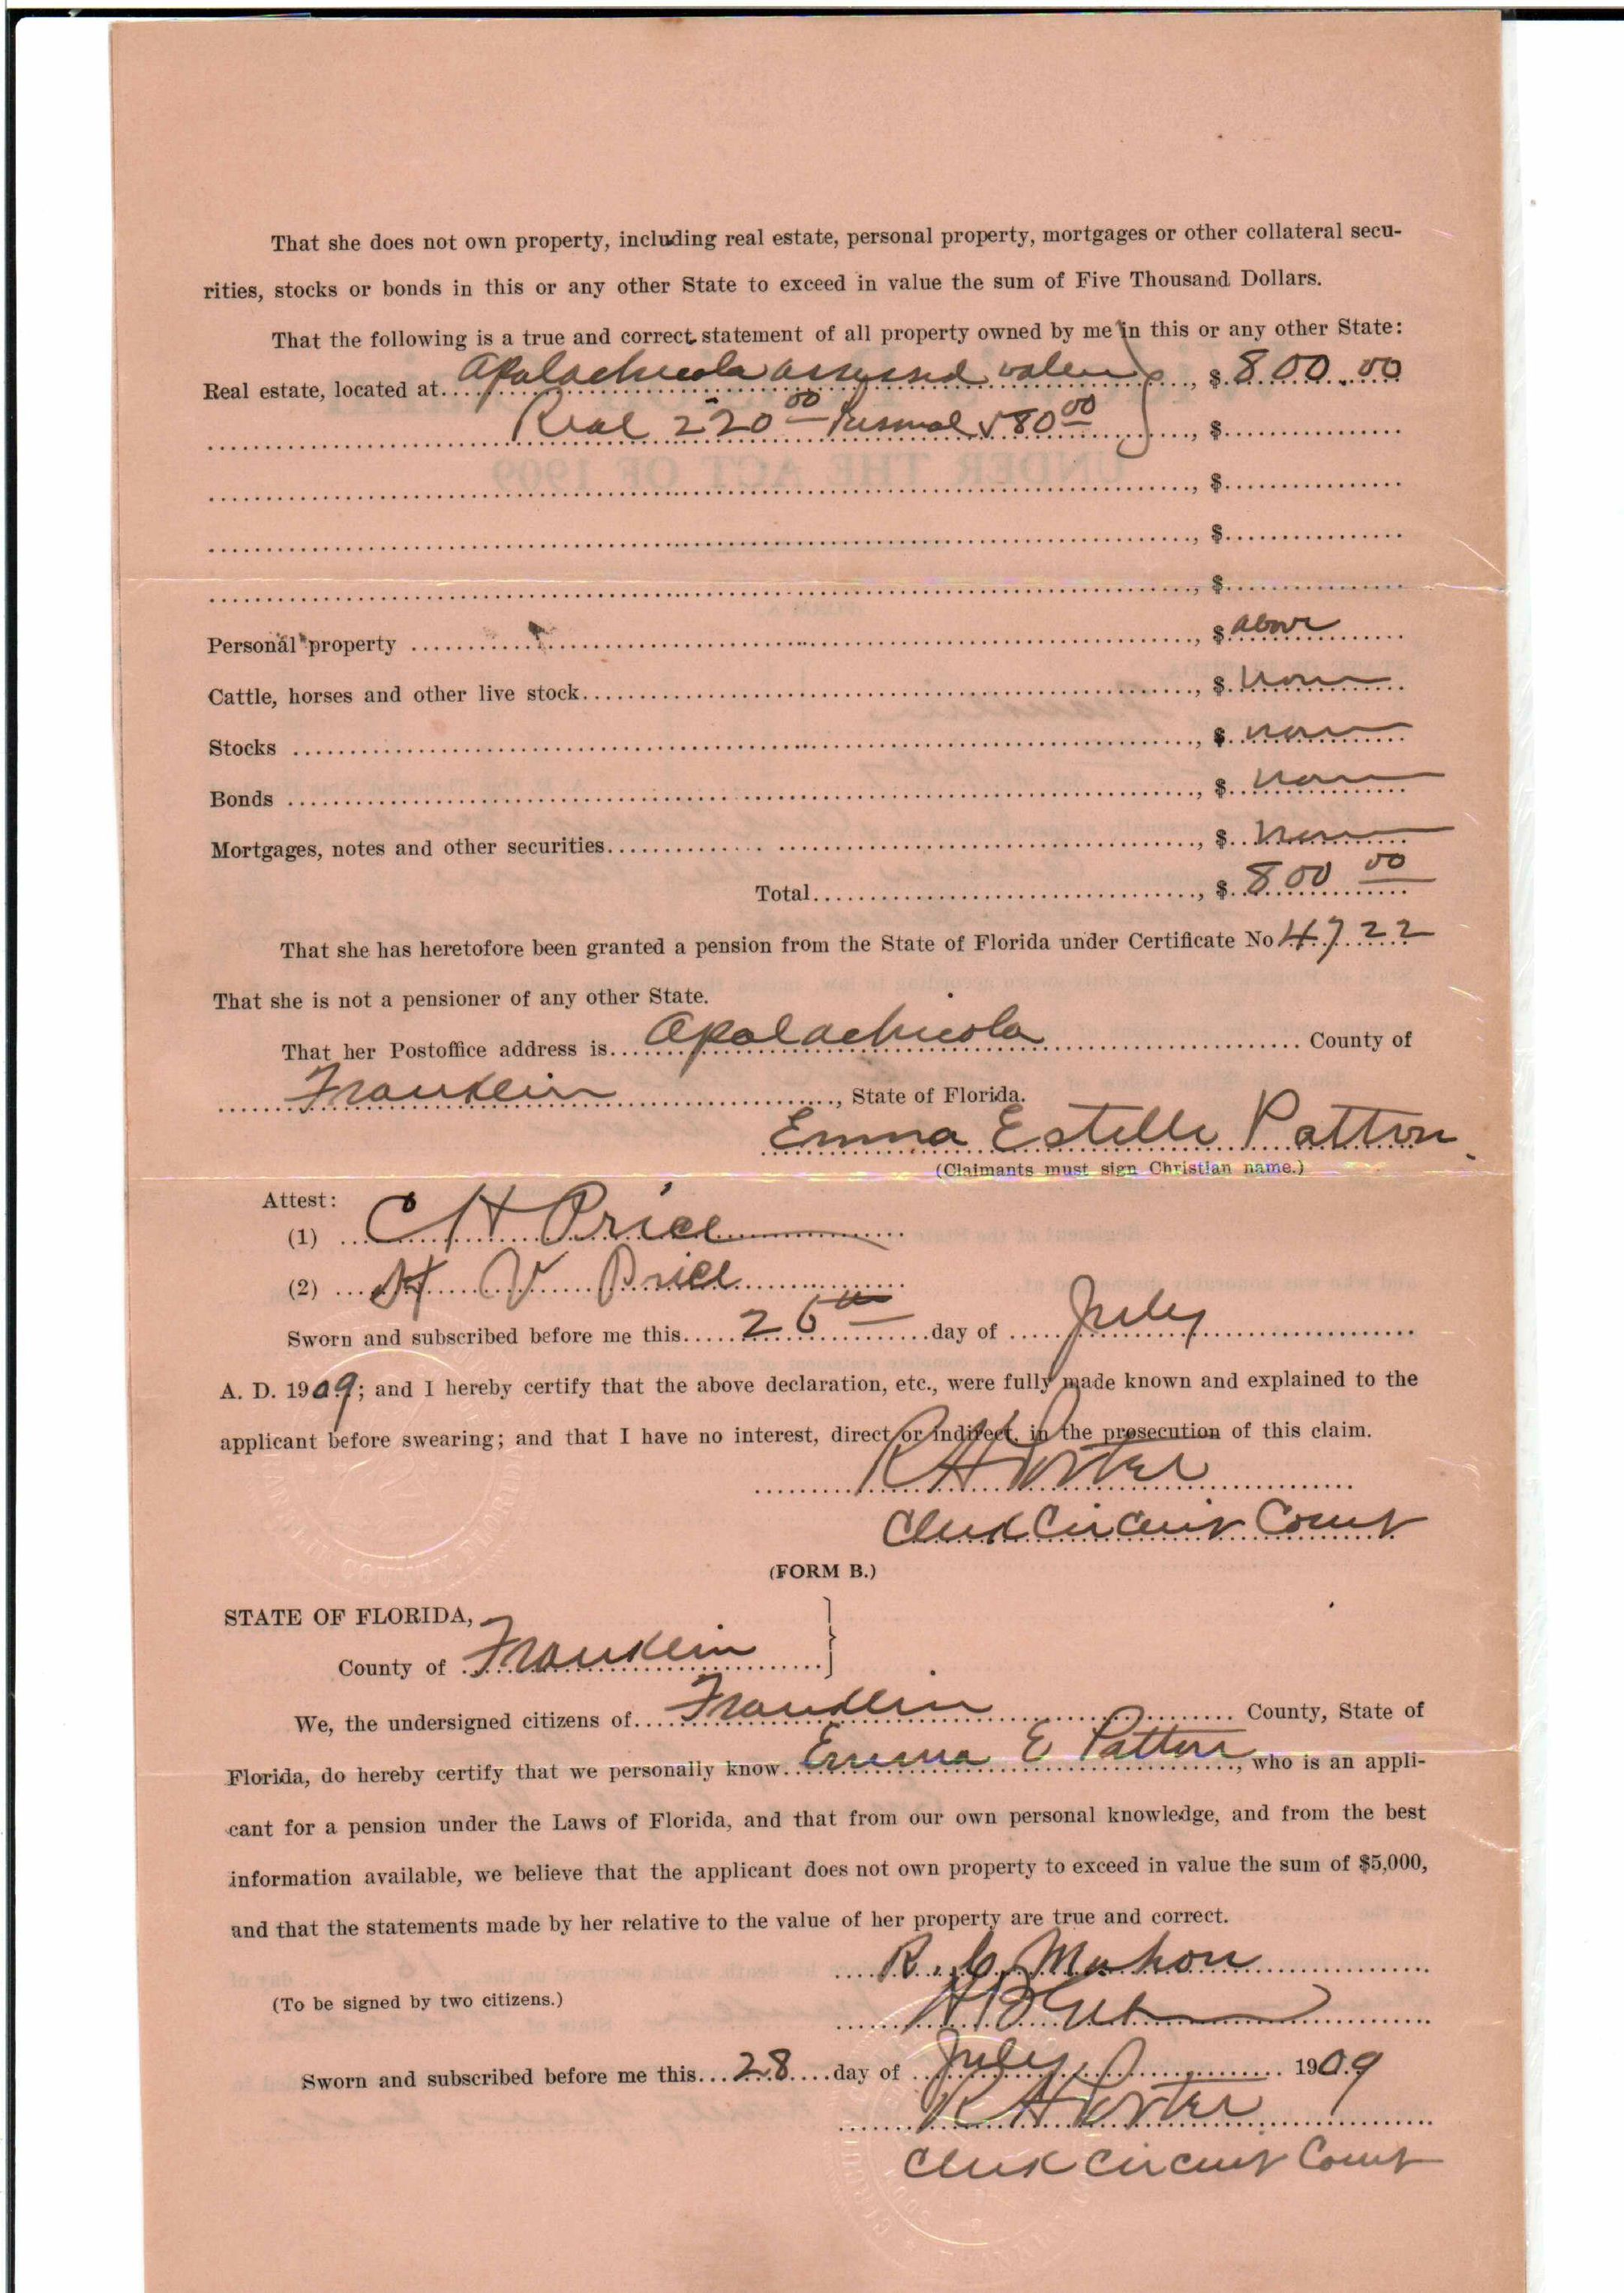 That she does not own property, including real estate, personal property, mortgages or other collateral secu-
rities, stocks or bonds in this or any other State to exceed in value the sum of Five Thousand Dollars.
That the following is a true and correct statement of all property owned by me in this or any other State:
Real estate, located at Apalachicola assessed value, $ 800.00
Real 220 00 Personal 580 00, $
UNDER THE ACT OF 1909
, $
, $
, $
Personal property, $ above
Cattle, horses and other live stock, $ none
Stocks, $ none
Bonds, $ none
Mortgages, notes and other securities, $ none
Total, $ 800 00
That she has heretofore been granted a pension from the State of Florida under Certificate No 4722
That she is not a pensioner of any other State.
That her Postoffice address is Apalachicola County of
Franklin, State of Florida.
Emma Estelle Patton
(Claimants must sign Christian name.)
Attest:
(1) C H Price
(2) H V Price
Sworn and subscribed before me this 26th day of July
A. D. 1909; and I hereby certify that the above declaration, etc., were fully made known and explained to the
applicant before swearing; and that I have no interest, direct or indirect, in the prosecution of this claim.
R H Porter
Clerk Circuit Court
(FORM B.)
STATE OF FLORIDA,
County of Franklin
We, the undersigned citizens of Franklin County, State of
Florida, do hereby certify that we personally know Emma E Patton, who is an appli-
cant for a pension under the Laws of Florida, and that from our own personal knowledge, and from the best
information available, we believe that the applicant does not own property to exceed in value the sum of $5,000,
and that the statements made by her relative to the value of her property are true and correct.
R. C. Mahon
(To be signed by two citizens.)
Sworn and subscribed before me this 28 day of July 1909
R H Porter
Clerk Circuit Court